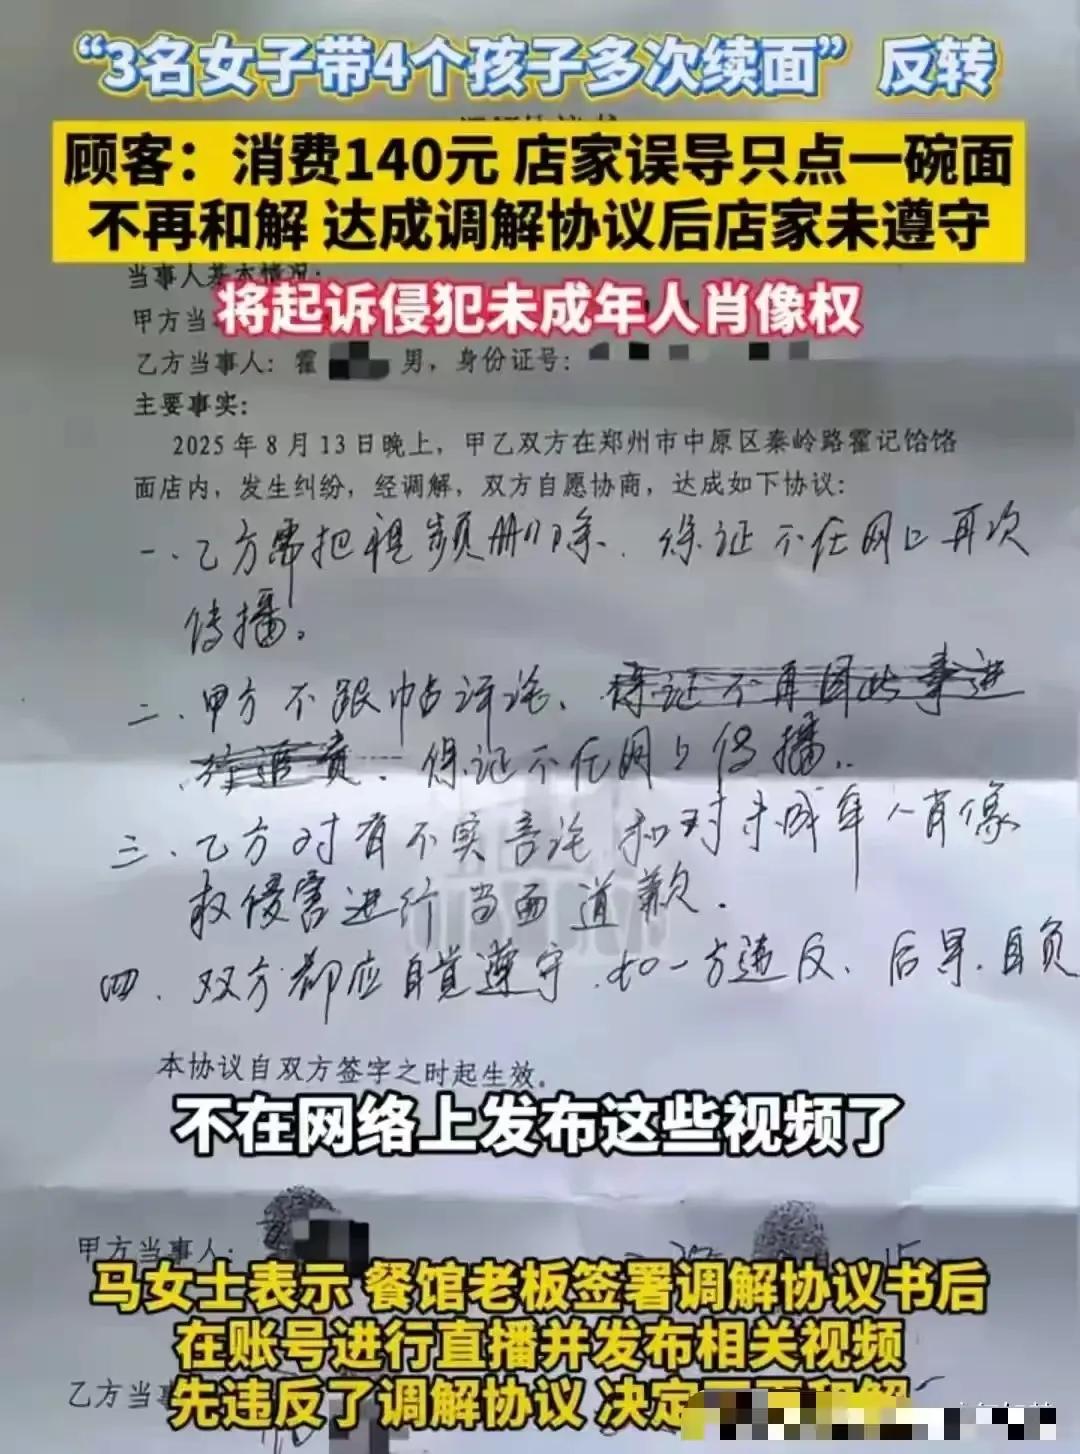 “3名女子带4个孩子多次续面”反转
顾客：消费140元 店家误导只点一碗面
不再和解 达成调解协议后店家未遵守
当事人基本情况：
将起诉侵犯未成年人肖像权
甲方当
乙方当事人：霍 男，身份证号：
主要事实：
2025年8月13日晚上，甲乙双方在郑州市中原区秦岭路霍记饸饹
面店内，发生纠纷，经调解，双方自愿协商，达成如下协议：
一、乙方需把视频删除．保证不在网上再次
传播。
二、甲方不跟帖评论、保证不再因此事进
行追责．保证不在网上传播．
三、乙方对有不实言论和对未成年人肖像
权侵害进行当面道歉．
四、双方都应自觉遵守．如一方违反、后果自负
本协议自双方签字之时起生效。
不在网络上发布这些视频了
甲方当事人：
马女士表示 餐馆老板签署调解协议书后
在账号进行直播并发布相关视频
乙方当事
先违反了调解协议 决定